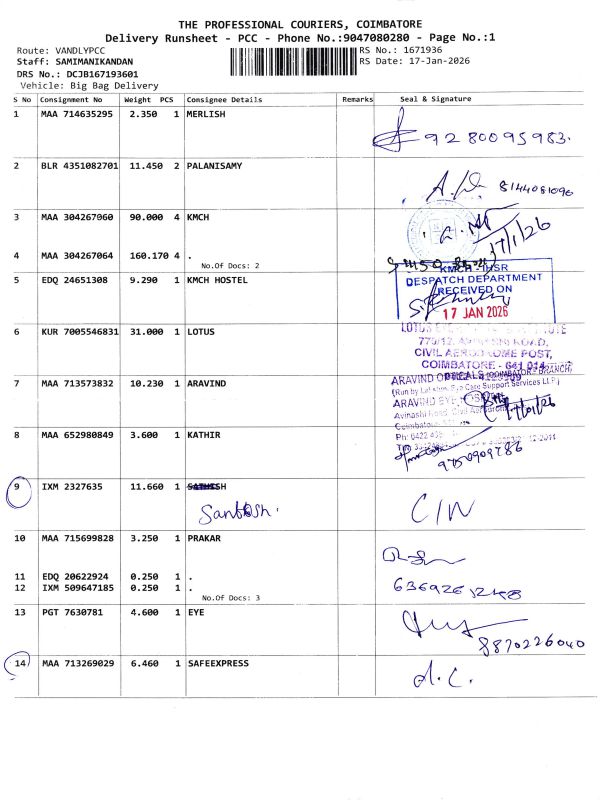 THE PROFESSIONAL COURIERS, COIMBATORE
Delivery Runsheet - PCC - Phone No.:9047080280 - Page No.:1
Route: VANDLYPCC
RS No.: 1671936
Staff: SAMIMANIKANDAN
RS Date: 17-Jan-2026
DRS No.: DCJB167193601
Vehicle: Big Bag Delivery
S No Consignment No Weight PCS Consignee Details Remarks Seal & Signature
1 MAA 714635295 2.350 1 MERLISH
9280095983.
2 BLR 4351082701 11.450 2 PALANISAMY
8144081090
3 MAA 304267060 90.000 4 KMCH
17/1/26
4 MAA 304267064 160.170 4 .
No.Of Docs: 2
5 EDQ 24651308 9.290 1 KMCH HOSTEL
KMCH - IHSR
DESPATCH DEPARTMENT
RECEIVED ON
17 JAN 2026
6 KUR 7005546831 31.000 1 LOTUS
LOTUS EYE
CIVIL AERODROME POST,
COIMBATORE - 641 014
7 MAA 713573832 10.230 1 ARAVIND
ARAVIND
Eye Care Support Services
ARAVIND EYE
Avinashi Road, Civil Aerodrome
17/01/26
8 MAA 652980849 3.600 1 KATHIR
Ph: 0422
9750909786
9 IXM 2327635 11.660 1 SATHISH
Santosh.
C/N
10 MAA 715699828 3.250 1 PRAKAR
11 EDQ 20622924 0.250 1 .
12 IXM 509647185 0.250 1 .
No.Of Docs: 3
13 PGT 7630781 4.600 1 EYE
8870226040
14 MAA 713269029 6.460 1 SAFEEXPRESS
d.c.